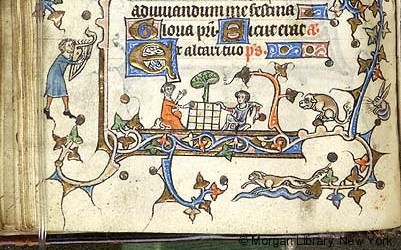 adiuuandum me festina
Gloria pri Sicut erat a
Et altari tuo ps
© Morgan Library, New York